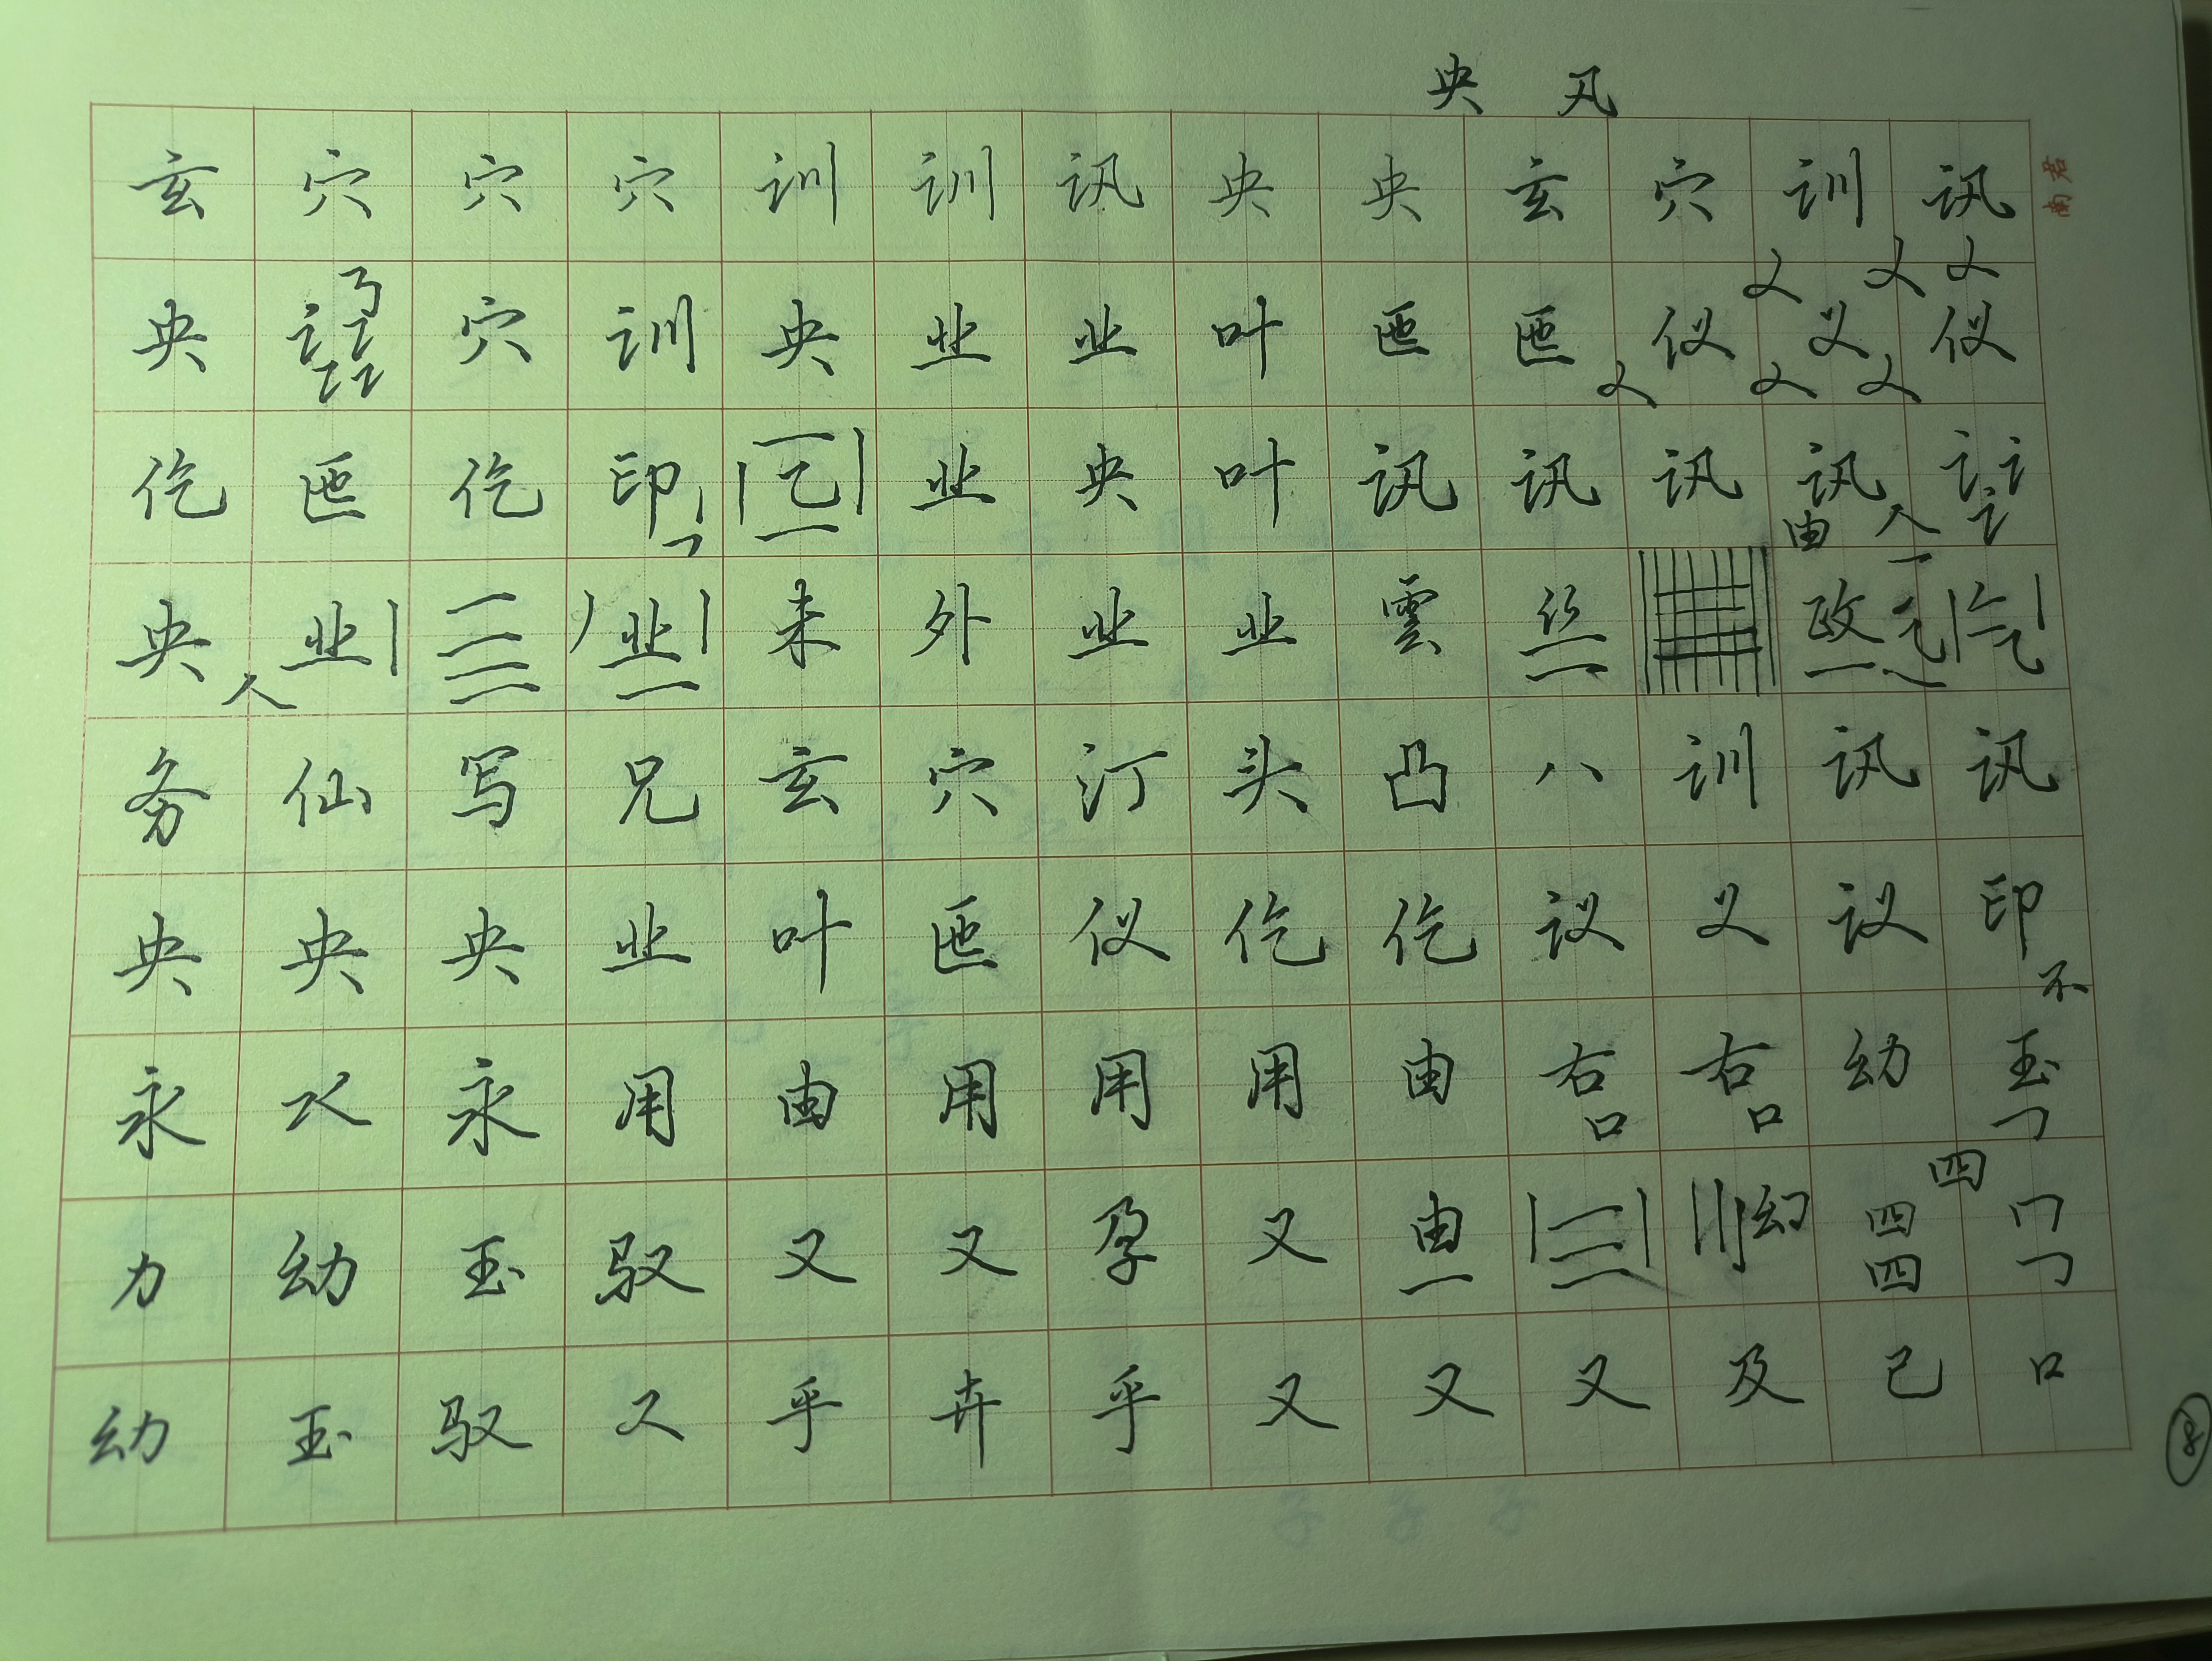 央
玄 穴 穴 穴 训 训 讯 央 央 玄 穴 训 讯
君南
央 穴 训 央 业 业 叶 匜 匜 仪 义 仪
仡 匜 仡 印 乞 业 央 叶 讯 讯 讯 讯
由 人
央 业 三 业 未 外 业 业 雲 丝 政 乞 乞
人
务 仙 写 兄 玄 穴 汀 头 凸 八 训 讯 讯
央 央 央 业 叶 匜 仪 仡 仡 议 义 议 印
不
永 永 用 由 用 用 用 由 右 右 幼 玉
口 口
四
力 幼 玉 驭 又 又 孕 又 由 三 幻 四
四
幼 玉 驭 又 乎 卉 乎 又 又 又 及 己 口
8